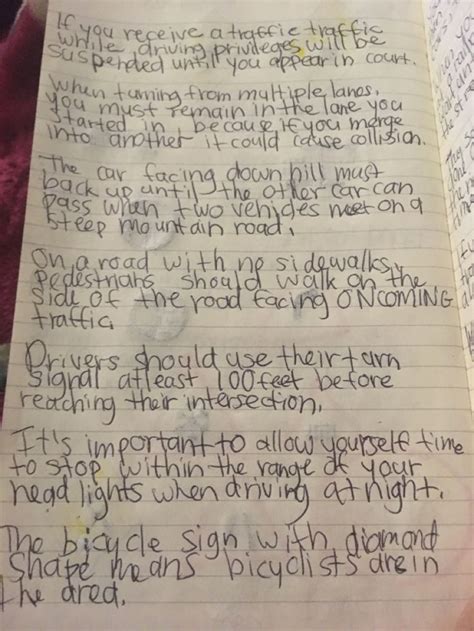 If you receive a traffic traffic
while driving privileges will be
suspended untill you appear in court.
When turning from multiple lanes,
you must remain in the lane you
started in, because if you merge
into another it could cause collision.
The car facing down hill must
back up until the other car can
pass when two vehicles meet on a
steep mountain road.
On a road with no sidewalks,
pedestrians should walk on the
side of the road facing ONCOMING
traffic.
Drivers should use their turn
signal atleast 100 feet before
reaching their intersection.
It's important to allow yourself time
to stop within the range of your
head lights when driving at night.
The bicycle sign with diamond
shape means bicyclists are in
the area.